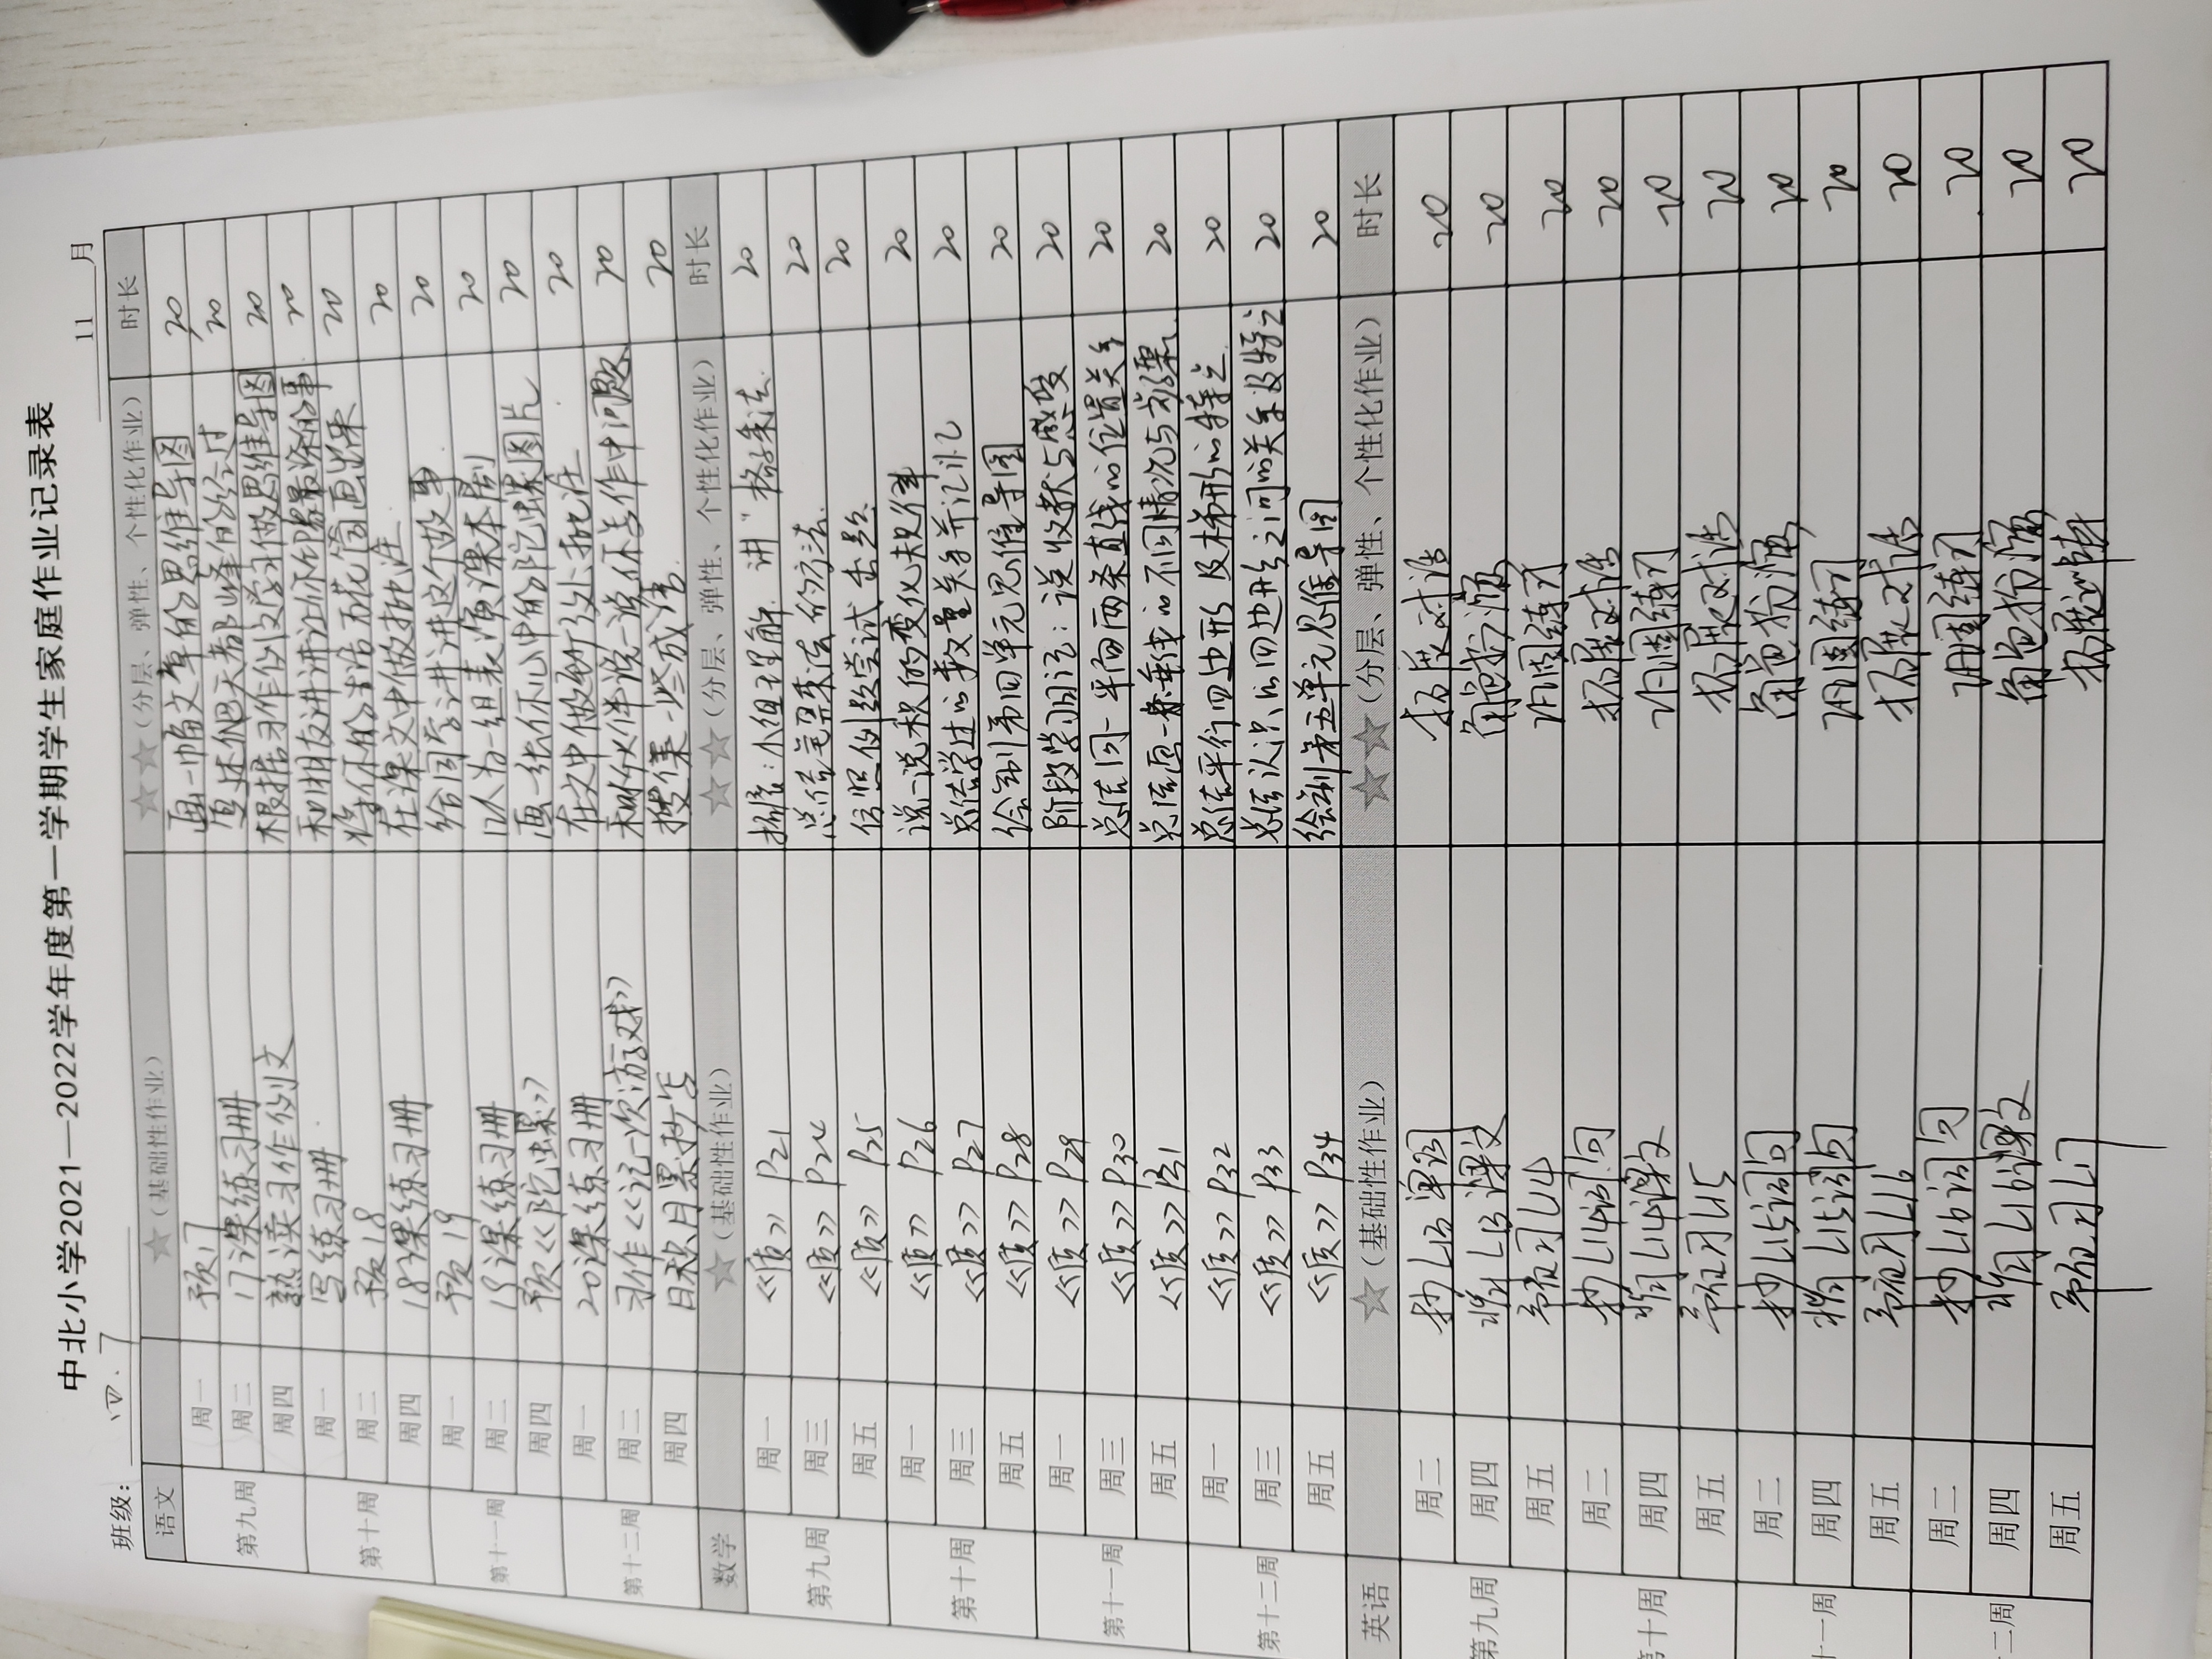 中北小学2021—2022学年度第一学期学生家庭作业记录表
班级: 四.7 11 月
语文 ★（基础性作业） ★★（分层、弹性、个性化作业） 时长
第九周 周一 预17 画一幅文章的思维导图 20
周二 17课练习册 复述爬天都峰的经过 20
周四 熟读习作例文 根据习作例文学习做思维导图 20
第十周 周一 写练习册. 和朋友讲讲让你印象最深的事 20
周二 预18 20
周四 18课练习册 在课文中做批注 20
第十一周 周一 预19 给同学讲讲这个故事. 20
周二 19课练习册 以人为一组表演课本剧 20
周四 预《陀螺》 画一张你心中的陀螺图片 20
第十二周 周一 20课练习册 在文中做批注 20
周二 习作《记一次游戏》 和伙伴说一说你写作中问题 20
周四 日积月累抄写 搜集一些成语 20
数学 ★（基础性作业） ★★（分层、弹性、个性化作业） 时长
第九周 周一 《质》 P21 小组理解. 讲"格子乘法. 20
周三 《质》 P24 总结笔算乘法的方法. 20
周五 《质》 P25 仿照例题尝试出题. 20
第十周 周一 《质》 P26 说一说积的变化规律 20
周三 《质》 P27 总结学过的数量关系并记忆 20
周五 《质》 P28 绘制第四单元思维导图 20
第十一周 周一 《质》 P29 阶段学习小结：说收获与感受 20
周三 《质》 P30 总结同一平面两条直线的位置关系 20
周五 《质》 P31 总结画垂线的不同情况与步骤. 20
第十二周 周一 《质》 P32 总结平行四边形及梯形的特点. 20
周三 《质》 P33 总结认识的四边形之间的关系及特点 20
周五 《质》 P34 绘制第五单元思维导图 20
英语 ★（基础性作业） ★★（分层、弹性、个性化作业） 时长
第九周 周二 抄L13单词 拓展对话 20
周四 背L13课文 角色扮演 20
周五 预习L14 巩固练习 20
第十周 周二 抄L14词句 拓展对话 20
周四 背L14课文 巩固练习 20
周五 预习L15 拓展对话 20
十一周 周二 抄L15词句 角色扮演 20
周四 背L15词句 巩固练习 20
周五 预习L16 拓展对话 20
十二周 周二 抄L16词句 巩固练习 20
周四 背L16课文 角色扮演 20
周五 预习L17 20